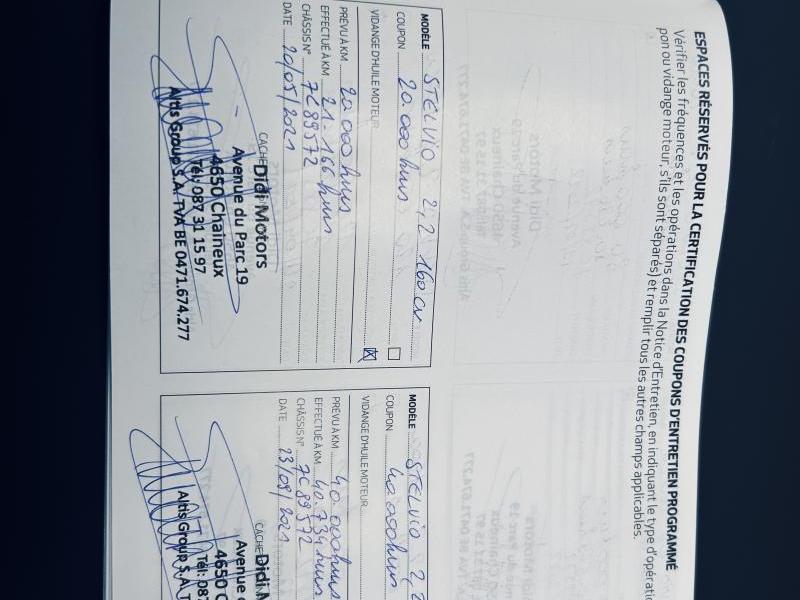 ESPACES RÉSERVÉS POUR LA CERTIFICATION DES COUPONS D'ENTRETIEN PROGRAMMÉ
Vérifier les fréquences et les opérations dans la Notice d'Entretien, en indiquant le type d'opératio
pon ou vidange moteur, s'ils sont séparés) et remplir tous les autres champs applicables.
MODÈLE STELVIO 2,2 160 cv
COUPON 20.000 kms
VIDANGE D'HUILE MOTEUR
PRÉVU À KM 20.000 kms
EFFECTUÉ À KM 21.166 kms
CHÂSSIS N° 7C89572
DATE 20/05/2021
CACHE
Didi Motors
Avenue du Parc 19
4650 Chaineux
Tél: 087 31 15 97
Altis Group S.A. TVA BE 0471.674.277
MODÈLE STELVIO 2,2
COUPON 40.000 kms
VIDANGE D'HUILE MOTEUR
PRÉVU À KM 40.000 kms
EFFECTUÉ À KM 40.734 kms
CHÂSSIS N° 7C89572
DATE 23/09/2021
CACHE
Didi M
Avenue d
4650 C
Tél: 087
Altis Group S.A. T